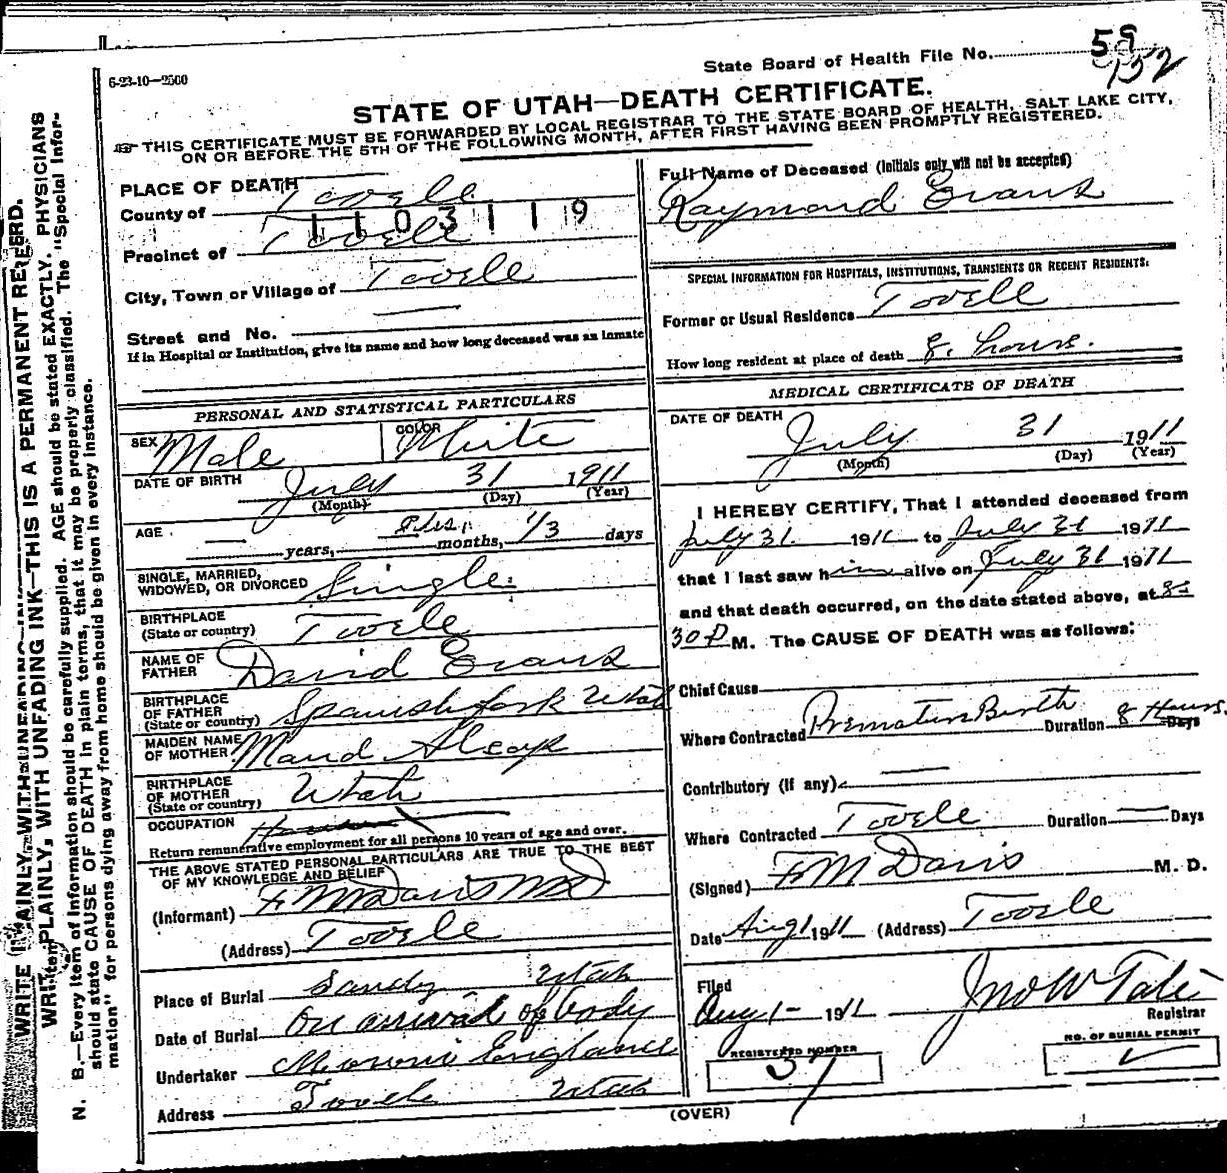 State Board of Health File No. 59
152
6-23-10—2500
STATE OF UTAH—DEATH CERTIFICATE.
THIS CERTIFICATE MUST BE FORWARDED BY LOCAL REGISTRAR TO THE STATE BOARD OF HEALTH, SALT LAKE CITY,
ON OR BEFORE THE 5TH OF THE FOLLOWING MONTH, AFTER FIRST HAVING BEEN PROMPTLY REGISTERED.
PLACE OF DEATH
County of Tooele
1103119
Precinct of Tooele
City, Town or Village of Tooele
Street and No.
If in Hospital or Institution, give its name and how long deceased was an inmate
PERSONAL AND STATISTICAL PARTICULARS
SEX Male COLOR White
DATE OF BIRTH July 31 1911
(Month) (Day) (Year)
AGE years, months, 1/3 days
SINGLE, MARRIED,
WIDOWED, OR DIVORCED Single
BIRTHPLACE
(State or country) Tooele
NAME OF
FATHER David Evans
BIRTHPLACE
OF FATHER
(State or country) Spanish fork Utah
MAIDEN NAME
OF MOTHER Maud
BIRTHPLACE
OF MOTHER
(State or country) Utah
OCCUPATION
Return remunerative employment for all persons 10 years of age and over.
THE ABOVE STATED PERSONAL PARTICULARS ARE TRUE TO THE BEST
OF MY KNOWLEDGE AND BELIEF
(Informant) F M Davis MD
(Address) Tooele
Place of Burial Sandy Utah
Date of Burial On arrival of body
Undertaker
Address Tooele Utah
Full Name of Deceased (Initials only will not be accepted)
Raymond Evans
SPECIAL INFORMATION FOR HOSPITALS, INSTITUTIONS, TRANSIENTS OR RECENT RESIDENTS:
Former or Usual Residence Tooele
How long resident at place of death 8. hours.
MEDICAL CERTIFICATE OF DEATH
DATE OF DEATH
July 31 1911
(Month) (Day) (Year)
I HEREBY CERTIFY, That I attended deceased from
July 31 1911 to July 31 1911
that I last saw him alive on July 31 1911
and that death occurred, on the date stated above, at 8
30 P M. The CAUSE OF DEATH was as follows:
Chief Cause
Premature Birth
Where Contracted Duration 8 Hours. Days
Contributory (if any)
Where Contracted Tooele Duration Days
(Signed) F M Davis M. D.
Date Aug 1 1911 (Address) Tooele
Filed
Aug 1- 1911 Jno W Tate
Registrar
REGISTERED NUMBER
37
NO. OF BURIAL PERMIT
(OVER)
WRITE PLAINLY, WITH UNFADING INK—THIS IS A PERMANENT RECORD.
N. B.—Every item of information should be carefully supplied. AGE should be stated EXACTLY. PHYSICIANS
should state CAUSE OF DEATH in plain terms, that it may be properly classified. The "Special Infor-
mation" for persons dying away from home should be given in every instance.